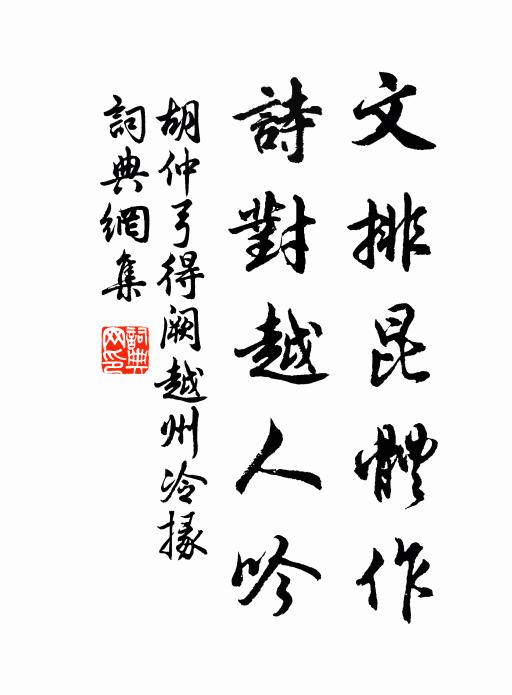 文排昆體作
詩對越人吟
胡仲弓得阙越州冷掾
詞典網集
詞典網印